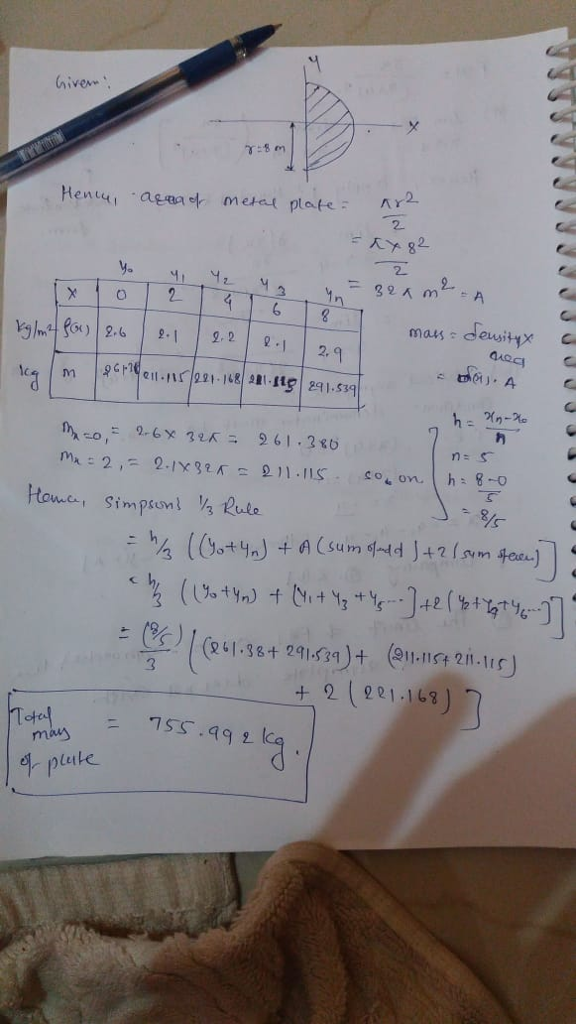 Given:
y
x
r=8m
Hence, area of metal plate = πr²/2
= π×8²/2
= 32π m² = A
y₀ y₁ y₂ y₃ yₙ
x 0 2 4 6 8
kg/m² ρ(x) 2.6 2.1 2.2 2.1 2.9
kg m 261.38 211.115 221.168 211.115 291.539
mass = density×
area
= ρ(x). A
mₓ=0, = 2.6× 32π = 261.380
mₓ=2, = 2.1×32π = 211.115. so, on
h = xₙ-x₀/n
n = 5
h = 8-0/5
= 8/5
Hence, Simpson's 1/3 Rule
= h/3 ((y₀+yₙ) + A (sum of odd) + 2 (sum of even)]
= h/3 ((y₀+yₙ) + (y₁+y₃+y₅...] +2(y₂+y₄+y₆...)]
= (8/5)/3 [(261.38+291.539)+ (211.115+211.115)
+ 2 (221.168)]
Total mass of plate = 755.992 kg.